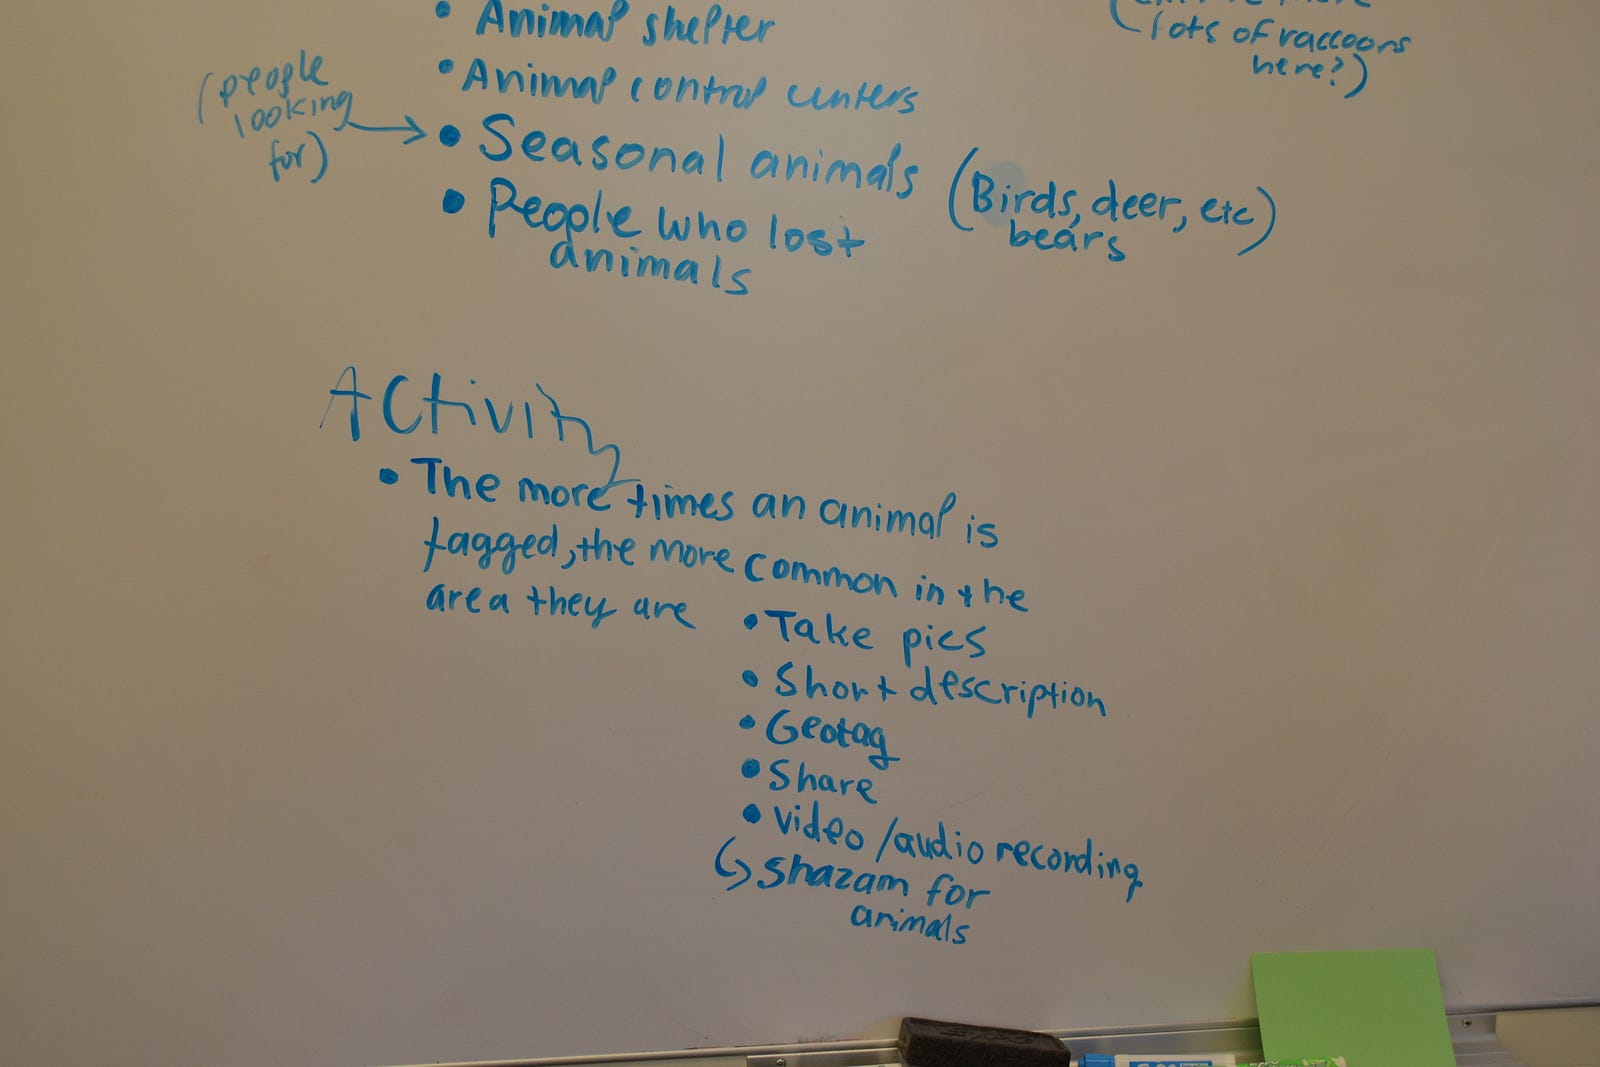 • Animal shelter
• Animal control centers
(people
looking
for)
• Seasonal animals (Birds, deer, etc)
bears
• People who lost
animals
lots of raccoons
here?)
Activity
• The more times an animal is
tagged, the more common in the
area they are
• Take pics
• Short description
• Geotag
• Share
• video/audio recording
↳ shazam for
animals